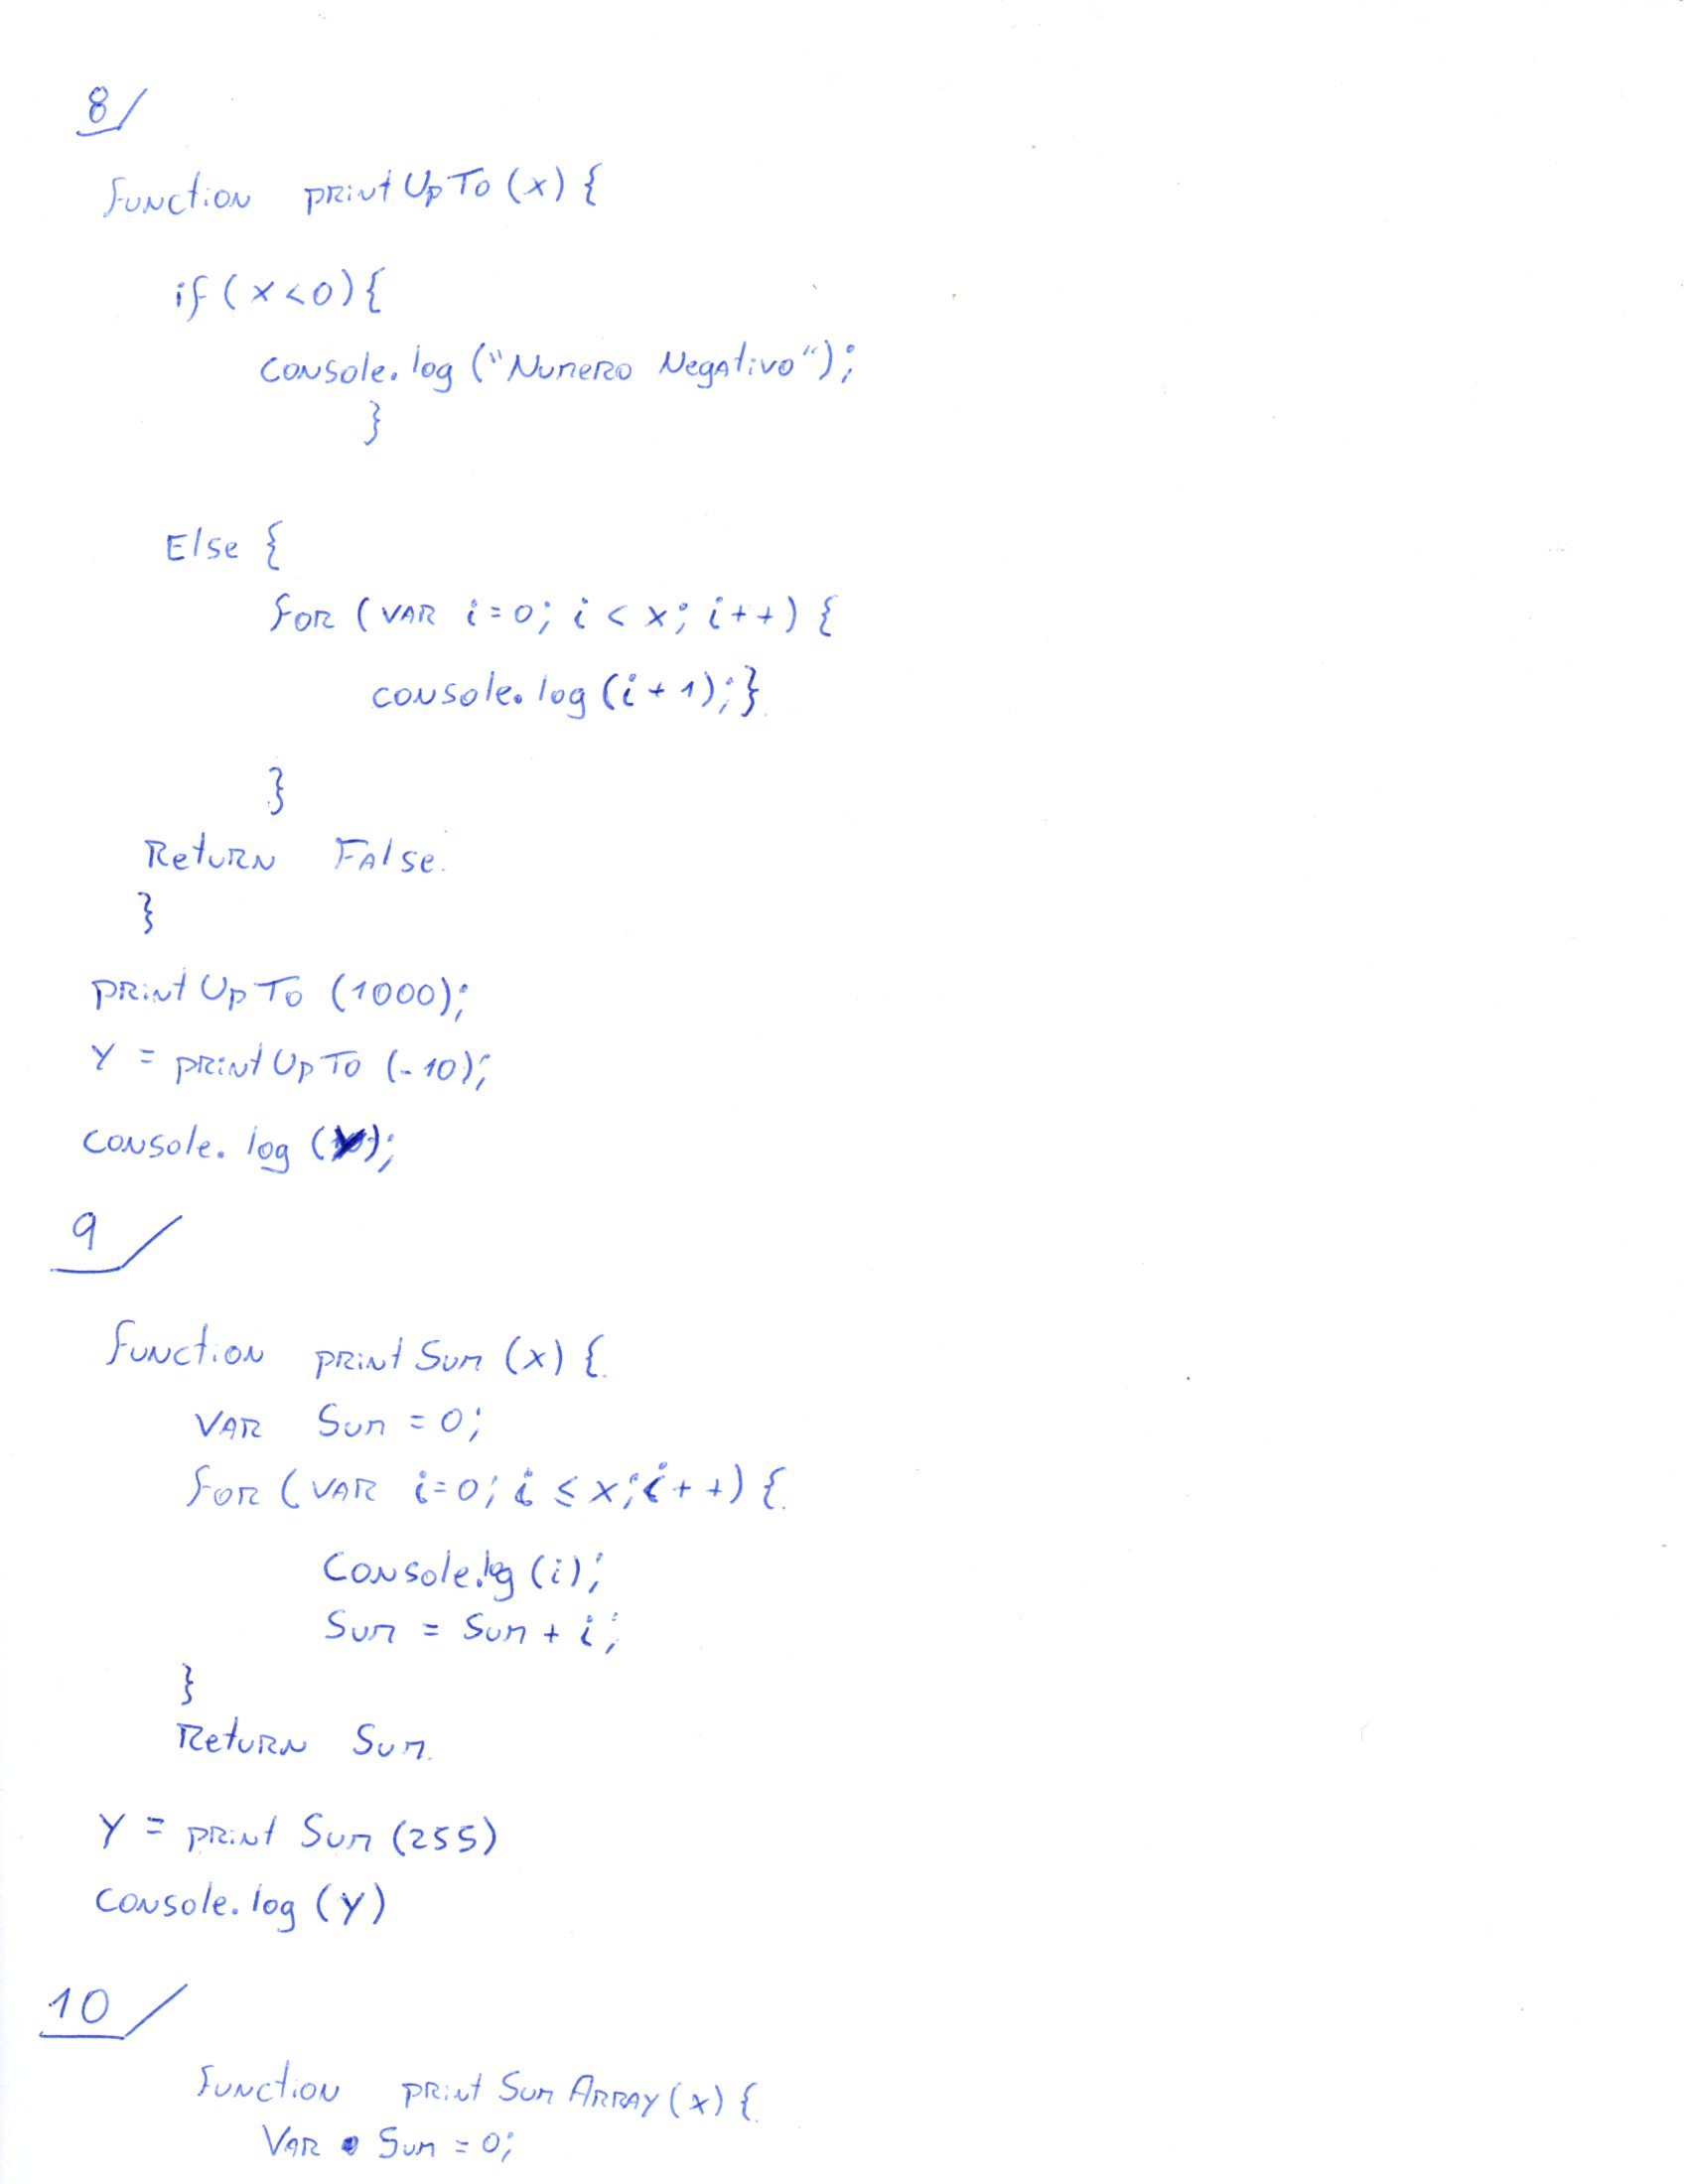 8/
function printUpTo (x) {
if (x<0) {
console.log ("Numero Negativo");
}
Else {
for (var i=0; i < x; i++) {
console.log (i+1);}
}
Return False.
}
printUpTo (1000);
Y = printUpTo (-10);
console.log (Y);
9/
function printSum (x) {
var Sum = 0;
for (var i=0; i ≤ x; i++) {
Console.log (i);
Sum = Sum + i;
}
Return Sum.
Y = print Sum (255)
console.log (Y)
10/
function printSumArray (x) {
Var Sum = 0;